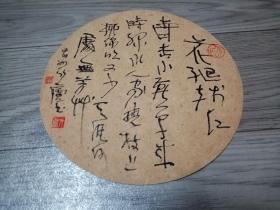 花褪残红
青杏小燕子飛
時绿水人家繞枝上
柳绵吹又少天涯何
處無芳草